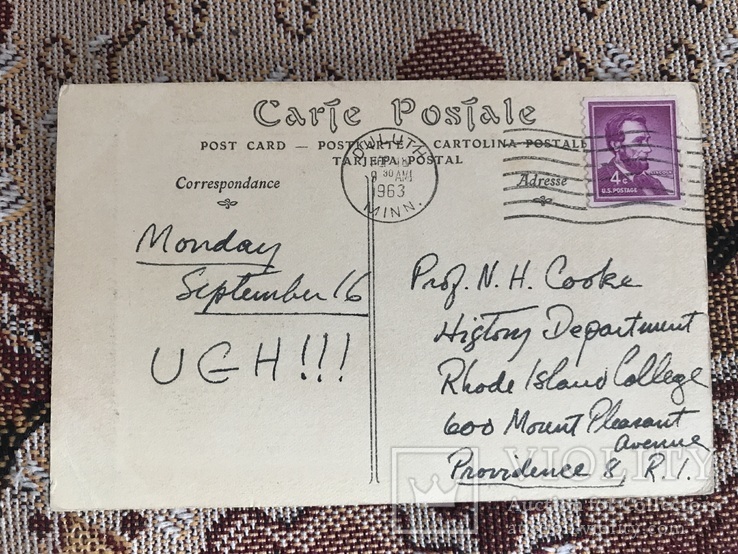 Carte Postale
POST CARD — POSTKARTE — CARTOLINA POSTALE
TARJETA POSTAL
Correspondance
Adresse
DULUTH
9 30 AM
1963
MINN.
4¢
U.S. POSTAGE
LINCOLN
Monday
September 16
UGH!!!
Prof. N. H. Cooke
History Department
Rhode Island College
600 Mount Pleasant
Avenue
Providence 8, R. I.
VIOLITY